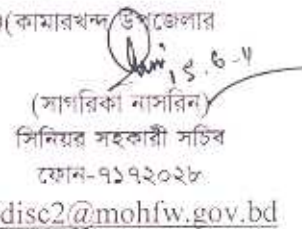 (কামারখন্দ উপজেলার
১৫.৬.১১
(সাগরিকা নাসরিন)
সিনিয়র সহকারী সচিব
ফোন-৭১৭২০২৮
disc2@mohfw.gov.bd